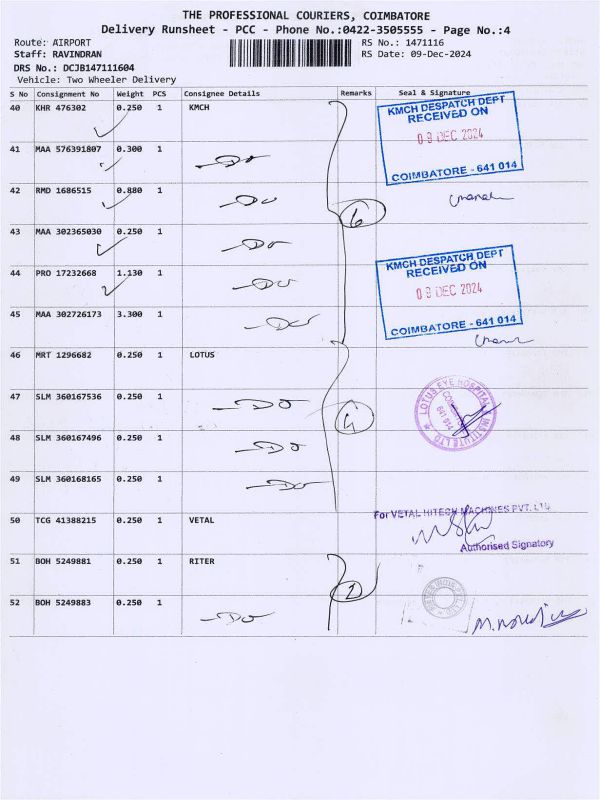 THE PROFESSIONAL COURIERS, COIMBATORE
Delivery Runsheet - PCC - Phone No.:0422-3505555 - Page No.:4
Route: AIRPORT RS No.: 1471116
Staff: RAVINDRAN RS Date: 09-Dec-2024
DRS No.: DCJB147111604
Vehicle: Two Wheeler Delivery
S No Consignment No Weight PCS Consignee Details Remarks Seal & Signature
40 KHR 476302 0.250 1 KMCH
KMCH DESPATCH DEPT
RECEIVED ON
09 DEC 2024
COIMBATORE - 641 014
41 MAA 576391807 0.300 1 Do
42 RMD 1686515 0.880 1 Do
6
43 MAA 302365030 0.250 1 Do
44 PRO 17232668 1.130 1 Do
KMCH DESPATCH DEPT
RECEIVED ON
09 DEC 2024
COIMBATORE - 641 014
45 MAA 302726173 3.300 1 Do
46 MRT 1296682 0.250 1 LOTUS
47 SLM 360167536 0.250 1 Do
4
LOTUS EYE HOSPITAL
INSTITUTE LTD
641 014
48 SLM 360167496 0.250 1 Do
49 SLM 360168165 0.250 1 Do
50 TCG 41388215 0.250 1 VETAL
For VETAL HITECH MACHINES PVT. LTD
Authorised Signatory
51 BOH 5249881 0.250 1 RITER
2
52 BOH 5249883 0.250 1 Do